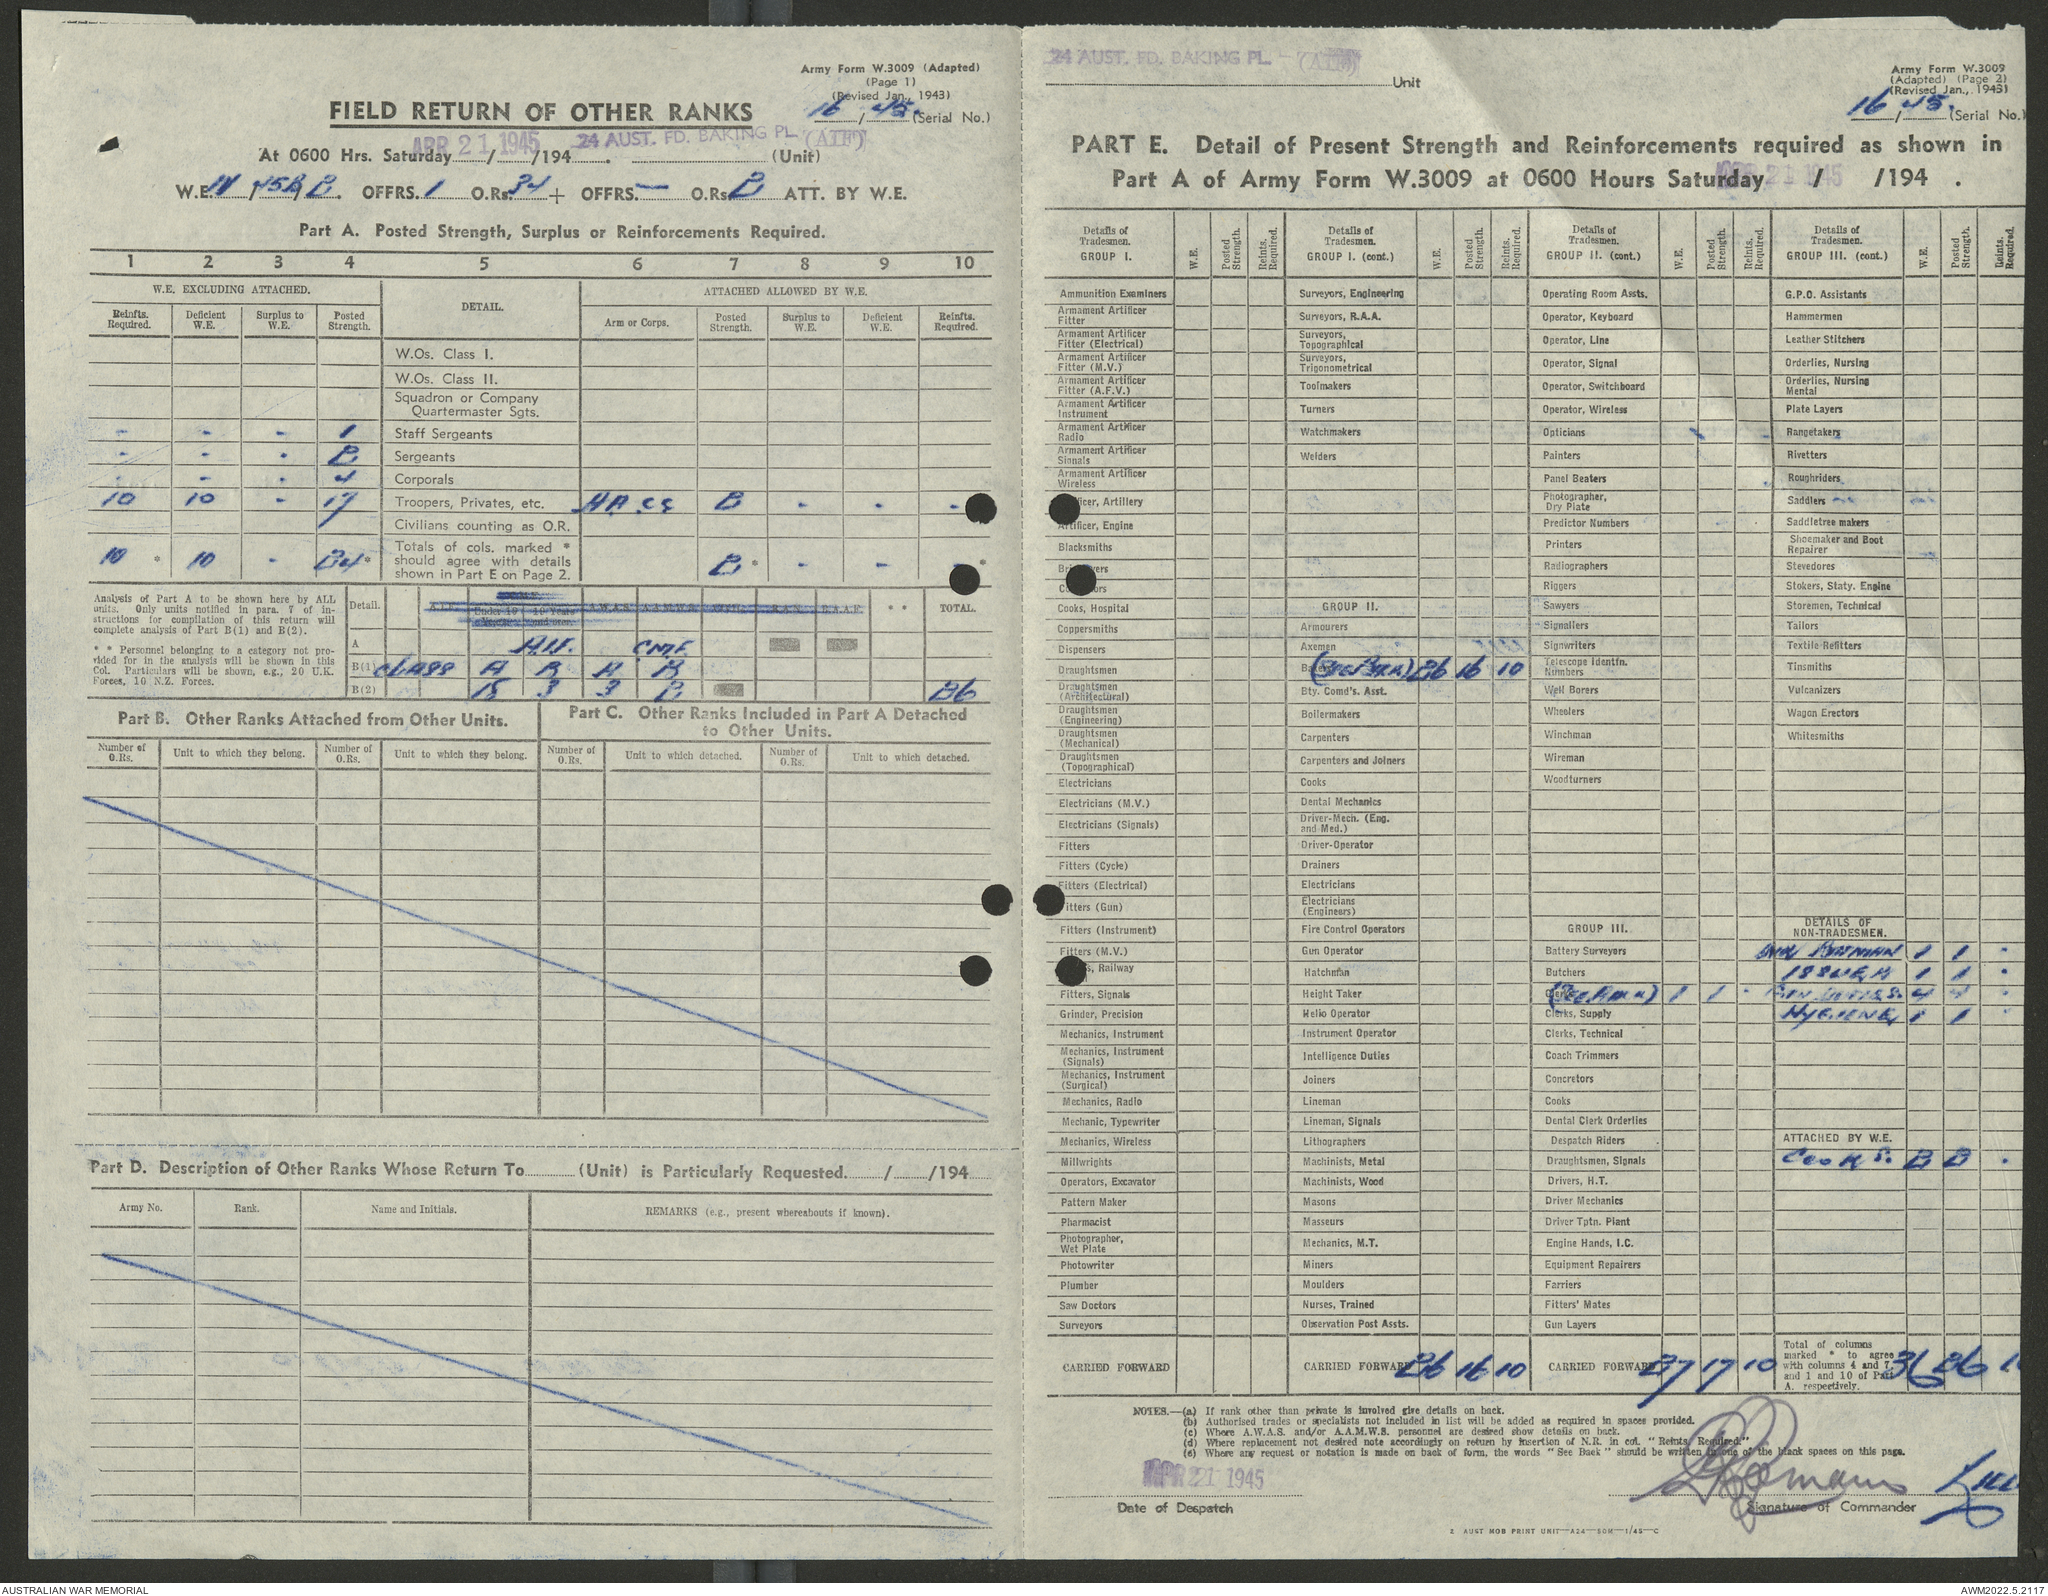 Army Form W.3009 (Adapted)
(Page 1)
(Revised Jan., 1943)
16/45. (Serial No.)
FIELD RETURN OF OTHER RANKS
At 0600 Hrs. Saturday APR 21 1945 /194 . 24 AUST. FD. BAKING PL. (AIF) (Unit)
W.E. OFFRS. 1 O.Rs. 34 + OFFRS. — O.Rs. 2 ATT. BY W.E.
Part A. Posted Strength, Surplus or Reinforcements Required.
1 2 3 4 5 6 7 8 9 10
W.E. EXCLUDING ATTACHED. DETAIL. ATTACHED ALLOWED BY W.E.
Reinfts. Required. Deficient W.E. Surplus to W.E. Posted Strength. Arm or Corps. Posted Strength. Surplus to W.E. Deficient W.E. Reinfts. Required.
W.Os. Class I.
W.Os. Class II.
Squadron or Company Quartermaster Sgts.
- - - 1 Staff Sergeants
- - - 2 Sergeants
- - - 4 Corporals
10 10 - 17 Troopers, Privates, etc. AACC 2 - - -
Civilians counting as O.R.
10 * 10 - 24 * Totals of cols. marked * should agree with details shown in Part E on Page 2. 2 * - - - *
Analysis of Part A to be shown here by ALL units. Only units notified in para. 7 of instructions for compilation of this return will complete analysis of Part B(1) and B(2).
* * Personnel belonging to a category not provided for in the analysis will be shown in this Col. Particulars will be shown, e.g., 20 U.K. Forces, 10 N.Z. Forces.
Detail. A.W.A.S. A.A.M.W.S. R.A.N. R.A.A.F. * * TOTAL.
A AIF. CMF.
B(1) CLASS A B A B
B(2) 18 3 3 2 26
Part B. Other Ranks Attached from Other Units.
Part C. Other Ranks Included in Part A Detached to Other Units.
Number of O.Rs. Unit to which they belong. Number of O.Rs. Unit to which they belong. Number of O.Rs. Unit to which detached. Number of O.Rs. Unit to which detached.
Part D. Description of Other Ranks Whose Return To (Unit) is Particularly Requested / /194
Army No. Rank. Name and Initials. REMARKS (e.g., present whereabouts if known).
24 AUST. FD. BAKING PL. - (AIF)
Unit
Army Form W.3009
(Adapted) (Page 2)
(Revised Jan., 1943)
16/45. (Serial No.)
PART E. Detail of Present Strength and Reinforcements required as shown in
Part A of Army Form W.3009 at 0600 Hours Saturday APR 21 1945 / /194 .
Details of Tradesmen. GROUP I. W.E. Posted Strength. Reints. Required.
Ammunition Examiners
Armament Artificer Fitter
Armament Artificer Fitter (Electrical)
Armament Artificer Fitter (M.V.)
Armament Artificer Fitter (A.F.V.)
Armament Artificer Instrument
Armament Artificer Radio
Armament Artificer Signals
Armament Artificer Wireless
Artillery
Artificer, Engine
Blacksmiths
Cooks, Hospital
Coppersmiths
Dispensers
Draughtsmen
Draughtsmen (Architectural)
Draughtsmen (Engineering)
Draughtsmen (Mechanical)
Draughtsmen (Topographical)
Electricians
Electricians (M.V.)
Electricians (Signals)
Fitters
Fitters (Cycle)
Fitters (Electrical)
Fitters (Gun)
Fitters (Instrument)
Fitters (M.V.)
Railway
Fitters, Signals
Grinder, Precision
Mechanics, Instrument
Mechanics, Instrument (Signals)
Mechanics, Instrument (Surgical)
Mechanics, Radio
Mechanic, Typewriter
Mechanics, Wireless
Millwrights
Operators, Excavator
Pattern Maker
Pharmacist
Photographer, Wet Plate
Photowriter
Plumber
Saw Doctors
Surveyors
CARRIED FORWARD
Details of Tradesmen. GROUP I. (cont.) W.E. Posted Strength. Reints. Required.
Surveyors, Engineering
Surveyors, R.A.A.
Surveyors, Topographical
Surveyors, Trigonometrical
Toolmakers
Turners
Watchmakers
Welders
GROUP II.
Armourers
Axemen
(See B.R.A.) 26 16 10
Bty. Comd's. Asst.
Boilermakers
Carpenters
Carpenters and Joiners
Cooks
Dental Mechanics
Driver-Mech. (Eng. and Med.)
Driver-Operator
Drainers
Electricians
Electricians (Engineers)
Fire Control Operators
Gun Operator
Hatchman
Height Taker
Helio Operator
Instrument Operator
Intelligence Duties
Joiners
Lineman
Lineman, Signals
Lithographers
Machinists, Metal
Machinists, Wood
Masons
Masseurs
Mechanics, M.T.
Miners
Moulders
Nurses, Trained
Observation Post Assts.
CARRIED FORWARD 26 16 10
Details of Tradesmen. GROUP II. (cont.) W.E. Posted Strength. Reints. Required.
Operating Room Assts.
Operator, Keyboard
Operator, Line
Operator, Signal
Operator, Switchboard
Operator, Wireless
Opticians
Painters
Panel Beaters
Photographer, Dry Plate
Predictor Numbers
Printers
Radiographers
Riggers
Sawyers
Signallers
Signwriters
Telescope Identfn. Numbers
Well Borers
Wheelers
Winchman
Wireman
Woodturners
GROUP III.
Battery Surveyors
Butchers
1 1 -
Clerks, Supply
Clerks, Technical
Coach Trimmers
Concretors
Cooks
Dental Clerk Orderlies
Despatch Riders
Draughtsmen, Signals
Drivers, H.T.
Driver Mechanics
Driver Tptn. Plant
Engine Hands, I.C.
Equipment Repairers
Farriers
Fitters' Mates
Gun Layers
CARRIED FORWARD 27 17 10
Details of Tradesmen. GROUP III. (cont.) W.E. Posted Strength. Reints. Required.
G.P.O. Assistants
Hammermen
Leather Stitchers
Orderlies, Nursing
Orderlies, Nursing Mental
Plate Layers
Rangetakers
Rivetters
Roughriders
Saddlers
Saddletree makers
Shoemaker and Boot Repairer
Stevedores
Stokers, Staty. Engine
Storemen, Technical
Tailors
Textile Refitters
Tinsmiths
Vulcanizers
Wagon Erectors
Whitesmiths
DETAILS OF NON-TRADESMEN.
BATMAN 1 1 -
ISSUER 1 1 -
GEN. DUTIES. 4 4 -
HYGIENE, 1 1 -
ATTACHED BY W.E.
COOKS. 2 2 -
Total of columns marked * to agree with columns 4 and 7 and 1 and 10 of Part A. respectively. 36 26
NOTES.—(a) If rank other than private is involved give details on back.
(b) Authorised trades or specialists not included in list will be added as required in spaces provided.
(c) Where A.W.A.S. and/or A.A.M.W.S. personnel are desired show details on back.
(d) Where replacement not desired note accordingly on return by insertion of N.R. in col. "Reints. Required."
(e) Where any request or notation is made on back of form, the words "See Back" should be written in one of the blank spaces on this page.
APR 21 1945
Date of Despatch
Signature of Commander
2 AUST MOB PRINT UNIT—A24—50M—1/45—C
AUSTRALIAN WAR MEMORIAL
AWM2022.5.2117